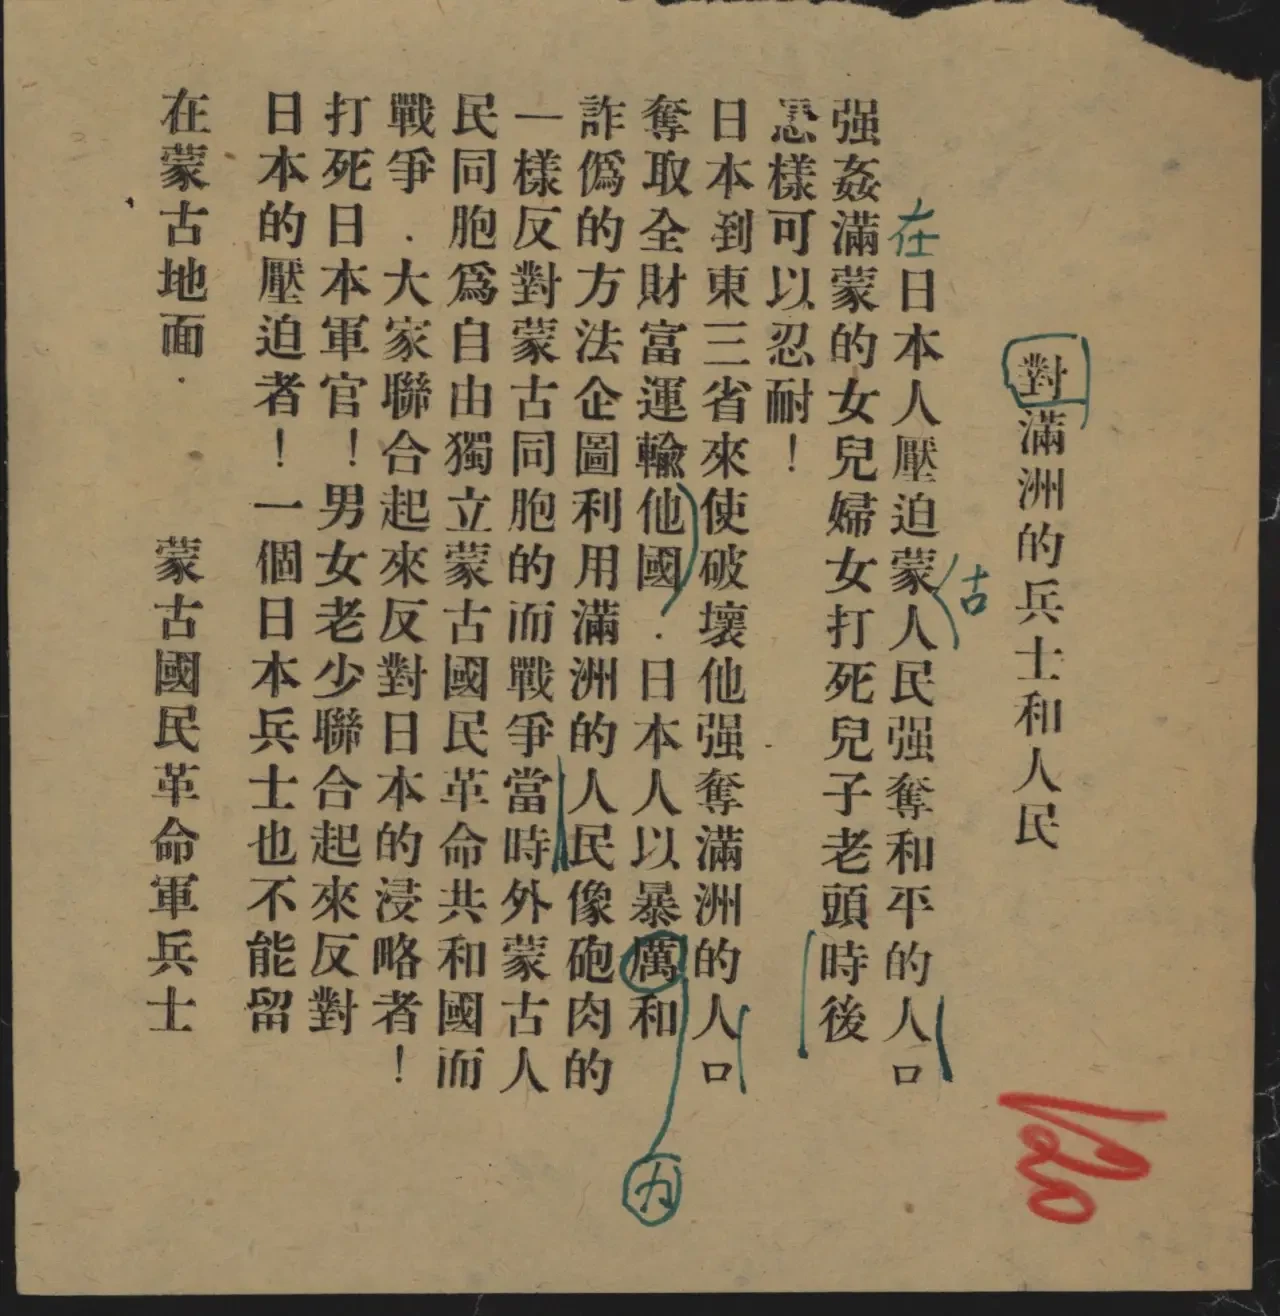 對滿洲的兵士和人民
在日本人壓迫蒙人民强奪和平的人口
古
强姦滿蒙的女兒婦女打死兒子老頭時後
恖樣可以忍耐！
日本到東三省來使破壞他强奪滿洲的人口
奪取全財富運輸他國．日本人以暴厲和
力
詐僞的方法企圖利用滿洲的人民像砲肉的
一樣反對蒙古同胞的而戰爭當時外蒙古人
民同胞爲自由獨立蒙古國民革命共和國而
戰爭．大家聯合起來反對日本的浸略者！
打死日本軍官！男女老少聯合起來反對
日本的壓迫者！一個日本兵士也不能留
在蒙古地面．
蒙古國民革命軍兵士